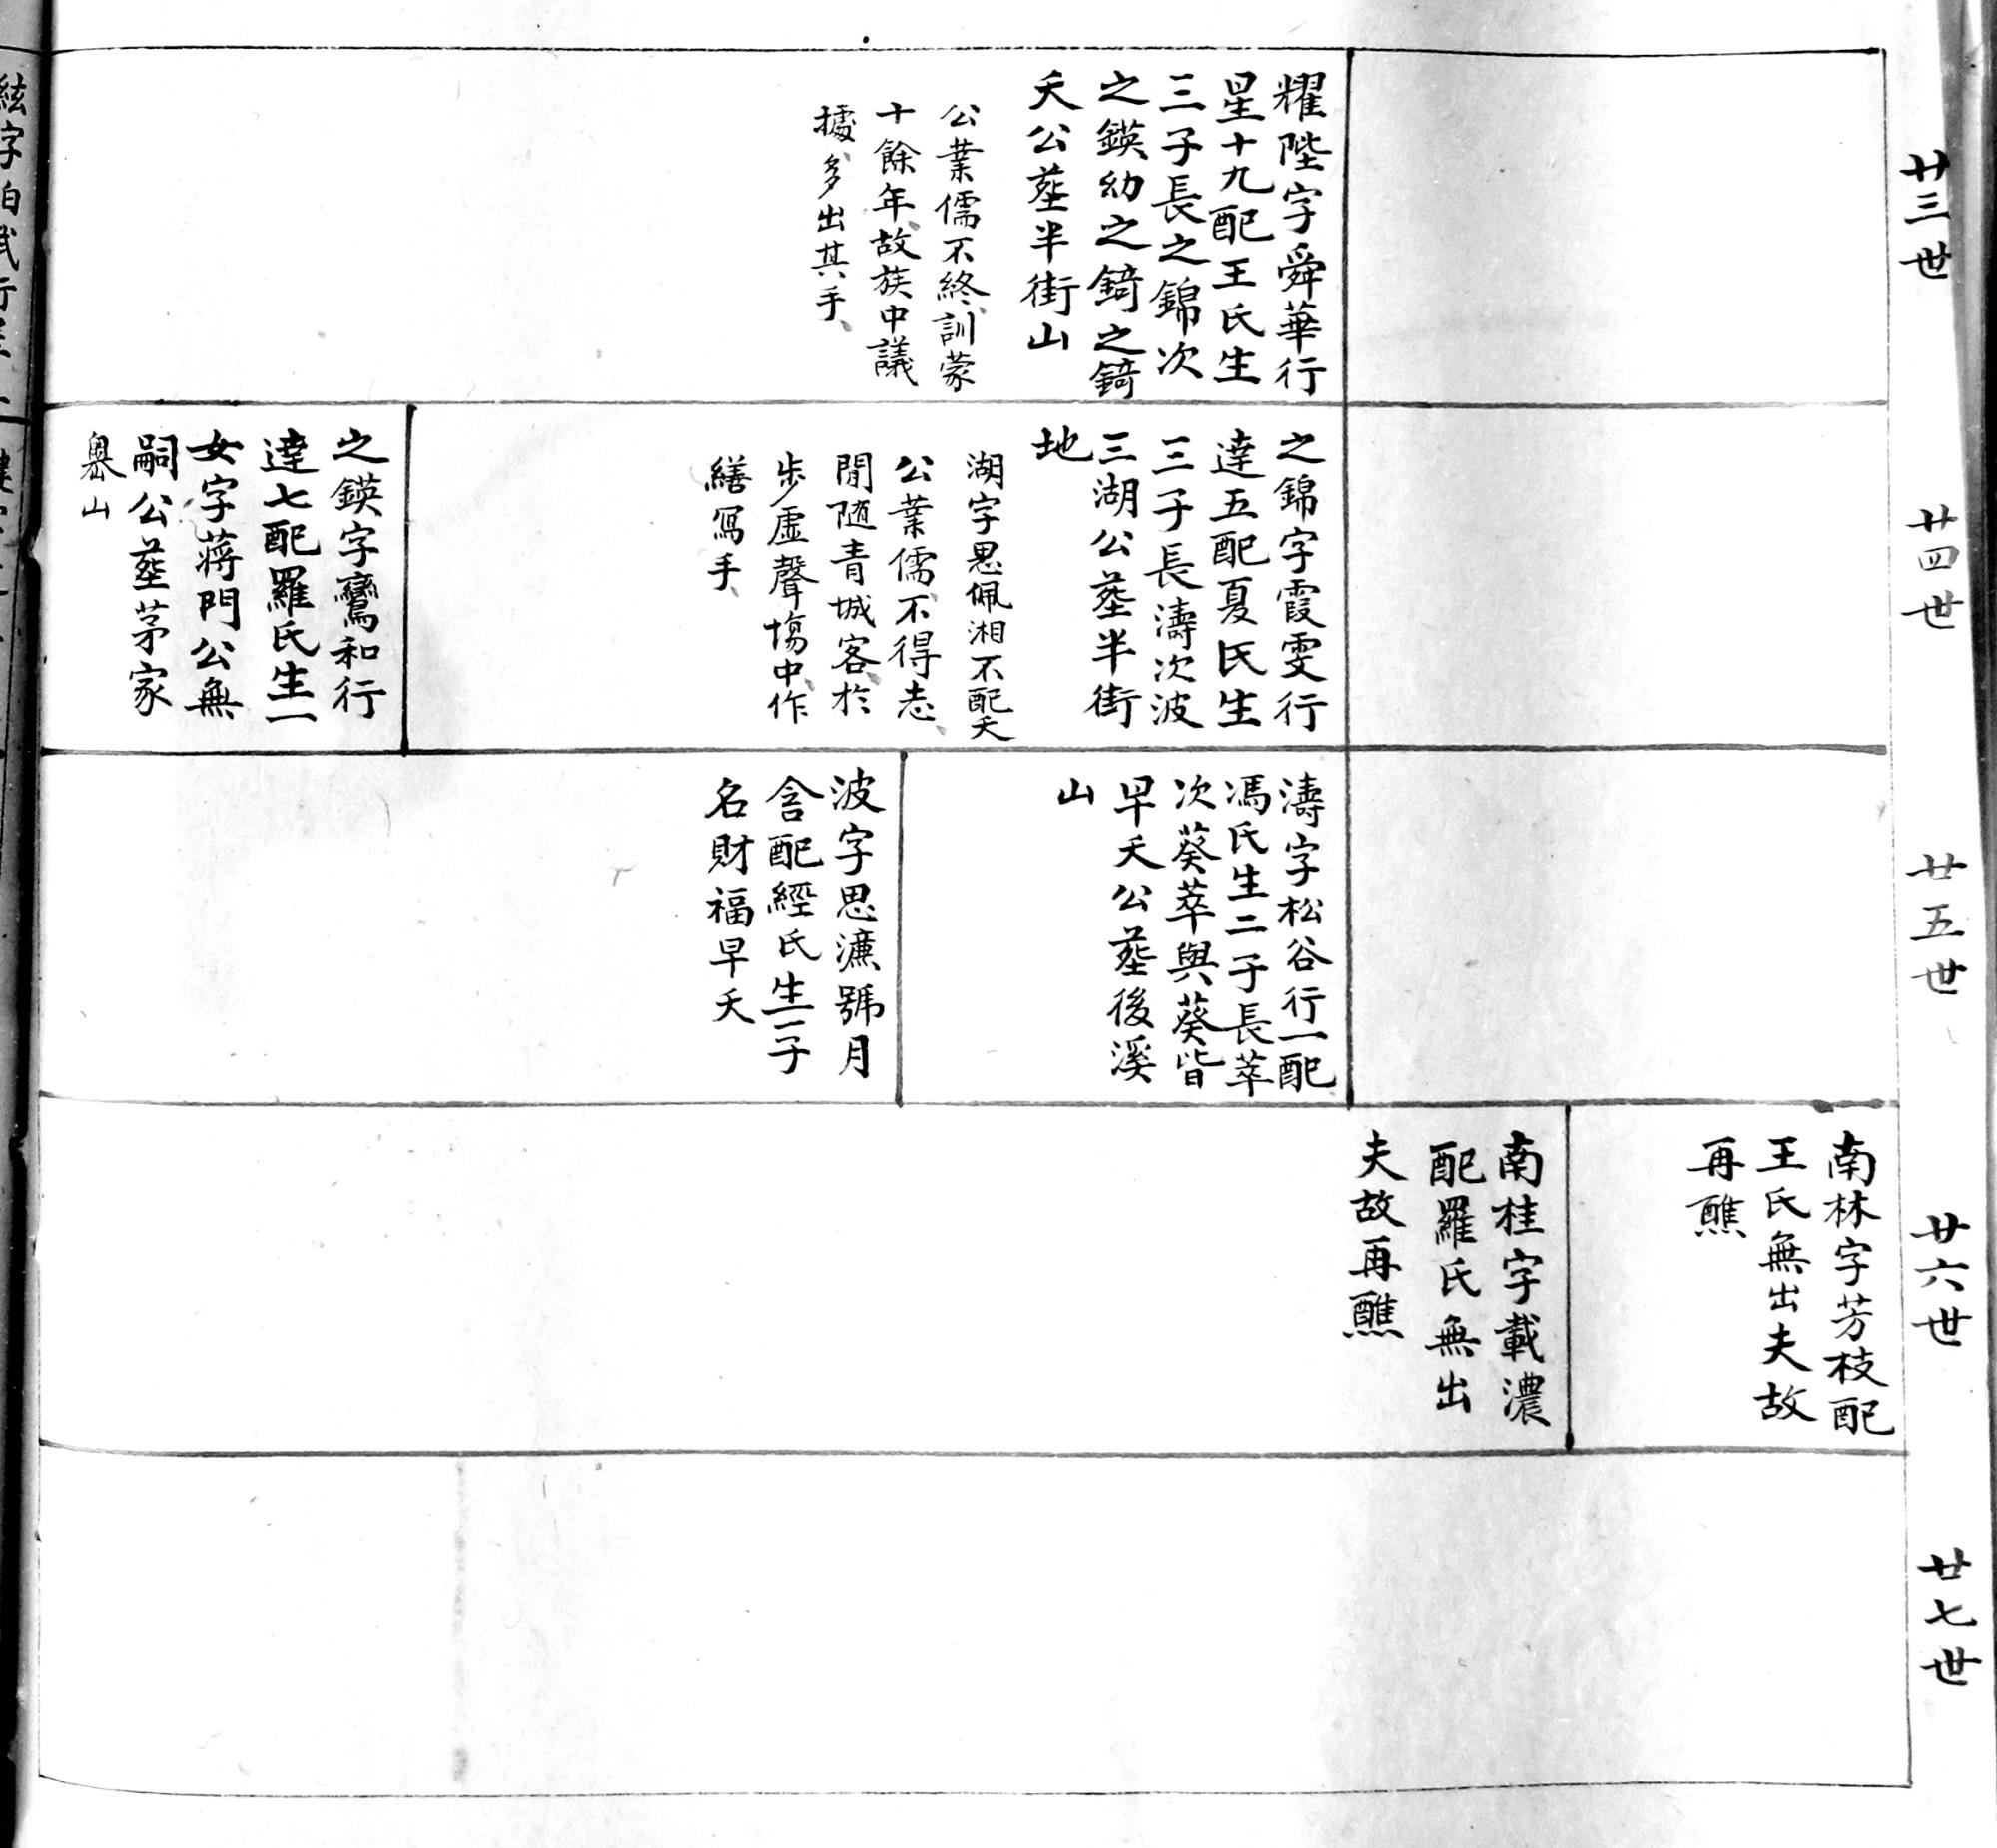 廿三世
耀陛字舜華行
星十九配王氏生
三子長之錦次
之鍈幼之錡之錡
夭公塟半街山
公業儒不終、訓蒙
十餘年、故族中議
據多出其手、
廿四世
之錦字霞雯行
達五配夏氏生
三子長濤次波
三湖公塟半街
地
湖字思佩湘不配夭
公業儒、不得志、
閒随青城客、於
步虛聲塲中、作
繕寫手、
之鍈字鸞和行
達七配羅氏生一
女字蔣門公無
嗣公塟茅家
山
廿五世
濤字松谷行一配
馮氏生二子長萃
次葵萃與葵皆
早夭公塟後溪
山
波字思濂號月
含配經氏生一子
名財福早夭
廿六世
南林字芳枝配
王氏無出夫故
再醮
南桂字載濃
配羅氏無出
夫故再醮
廿七世